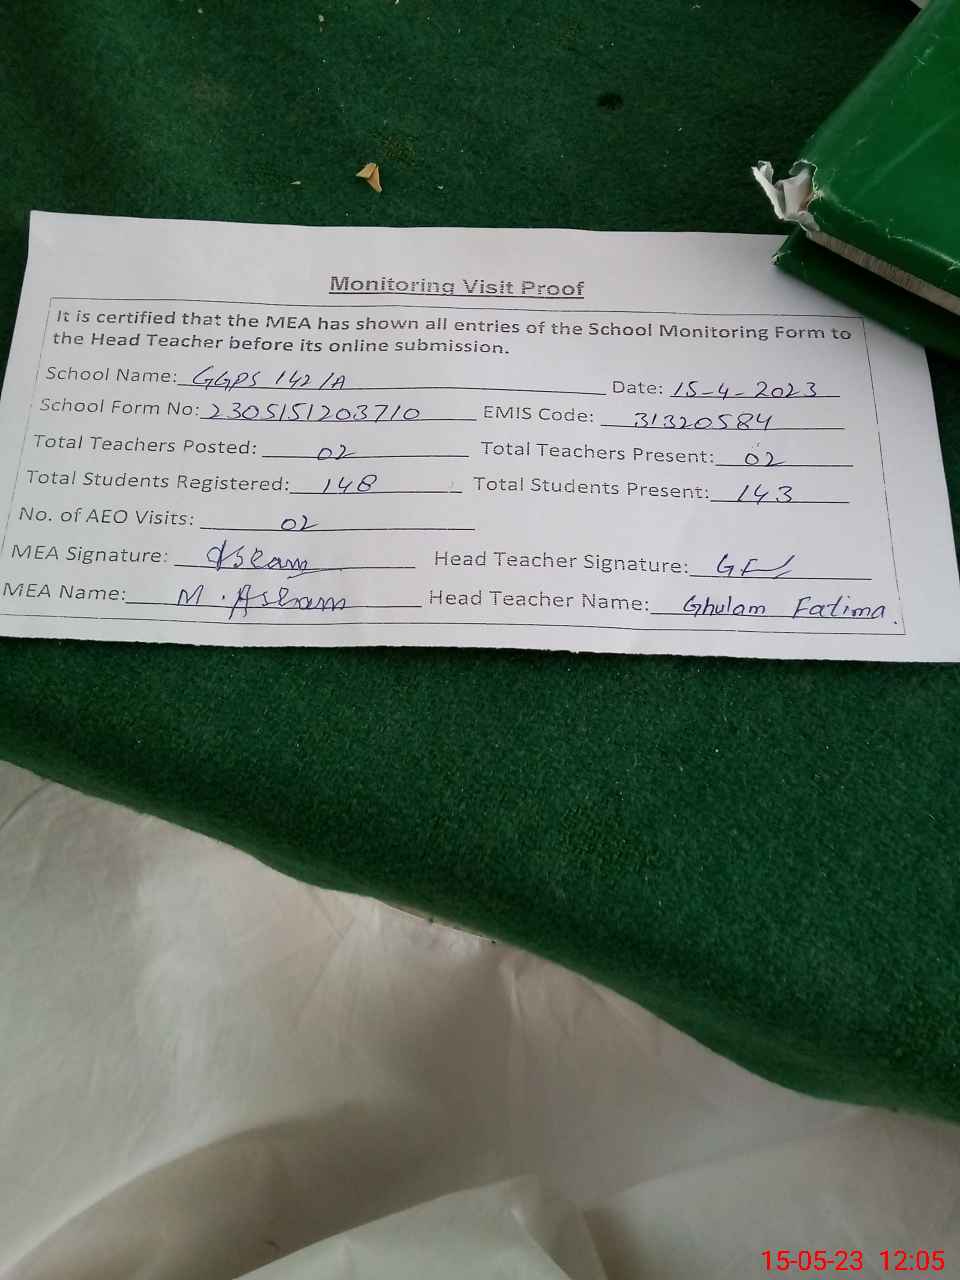 Monitoring Visit Proof
It is certified that the MEA has shown all entries of the School Monitoring Form to
the Head Teacher before its online submission.
School Name: GGPS 142/A Date: 15-4-2023
School Form No: 2305151203710 EMIS Code: 31320584
Total Teachers Posted: 02 Total Teachers Present: 02
Total Students Registered: 148 Total Students Present: 143
No. of AEO Visits: 02
MEA Signature: Aslam Head Teacher Signature: GF
MEA Name: M. Aslam Head Teacher Name: Ghulam Fatima.
15-05-23 12:05